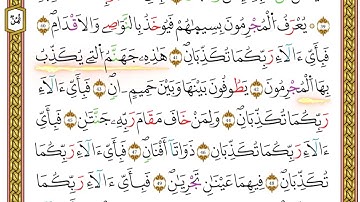 ٣٩ يُعْرَفُ الْمُجْرِمُونَ بِسِيمٰهُمْ فَيُؤْخَذُ بِالنَّوٰصِي وَالْأَقْدَامِ ٤٠
فَبِأَيِّ ءَالَآءِ رَبِّكُمَا تُكَذِّبَانِ ٤١ هَٰذِهِ جَهَنَّمُ الَّتِي يُكَذِّبُ
بِهَا الْمُجْرِمُونَ ٤٢ يَطُوفُونَ بَيْنَهَا وَبَيْنَ حَمِيمٍ ـانٍ ٤٣ فَبِأَيِّ ءَالَآءِ
رَبِّكُمَا تُكَذِّبَانِ ٤٤ وَلِمَنْ خَافَ مَقَامَ رَبِّهِ جَنَّتَانِ ٤٥ فَبِأَيِّ
ءَالَآءِ رَبِّكُمَا تُكَذِّبَانِ ٤٦ ذَوَاتَآ أَفْنَانٍ ٤٧ فَبِأَيِّ ءَالَآءِ رَبِّكُمَا
تُكَذِّبَانِ ٤٨ فِيهِمَا عَيْنَانِ تَجْرِيَانِ ٤٩ فَبِأَيِّ ءَالَآءِ رَبِّكُمَا